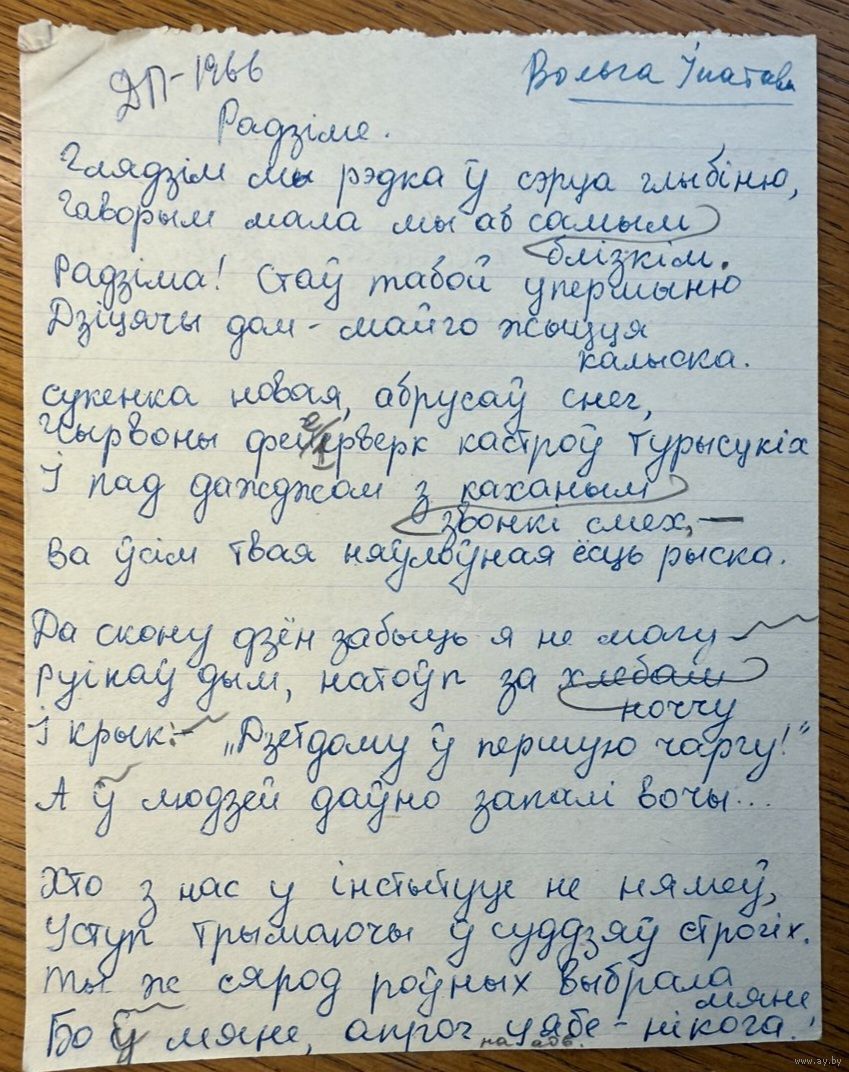 ДП-1966
Вольга Іпатава
Радзіме.
Глядзім мы рэдка ў сэрца глыбіню,
Гаворым мала мы аб самым
блізкім.
Радзіма! Стаў табой упершыню
Дзіцячы дом - майго жыцця
калыска.
Сукенка новая, абрусаў снег,
Чырвоны феерверк кастроў турысцкіх
І пад дажджом з каханым
звонкі смех, —
Ва ўсім твая няўлоўная ёсць рыска.
Да скону дзён забыць я не магу
Руінаў дым, натоўп за хлебам
ноччу
І крык: - „Дзетдому ў першую чаргу!"
А ў людзей даўно запалі вочы...
Хто з нас у інстытуце не нямеў,
Уступ трымаючы ў суддзяў строгіх.
Ты ж сярод роўных выбрала
мяне
Бо ў мяне, апроч цябе - нікога.
www.ay.by